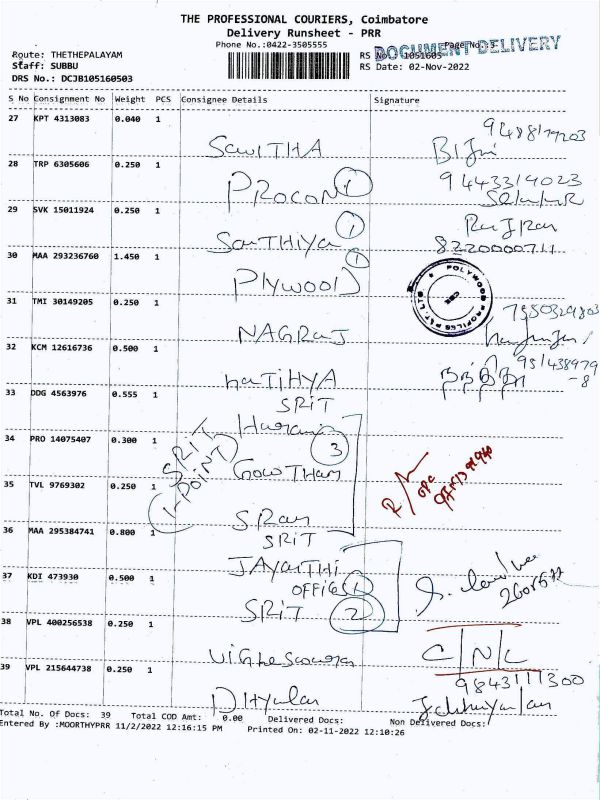 THE PROFESSIONAL COURIERS, Coimbatore
Delivery Runsheet - PRR
Phone No.:0422-3505555
Page No.:3
DOCUMENT DELIVERY
Route: THETHEPALAYAM
Staff: SUBBU
DRS No.: DCJB105160503
RS No.: 1051605
RS Date: 02-Nov-2022
S No Consignment No Weight PCS Consignee Details Signature
27 KPT 4313083 0.040 1
SawITHA
28 TRP 6305606 0.250 1
9443314023
PROCON 1
29 SVK 15011924 0.250 1
SaTHIYa 1
8220000711
30 MAA 293236760 1.450 1
PlYWOOD 1
POLYWOOD PROFILES PVT. LTD. * CBE
31 TMI 30149205 0.250 1
7550329803
NAGRaJ
32 KCM 12616736 0.500 1
951438979
-8
haTIHYA
33 DDG 4563976 0.555 1
SRiT
34 PRO 14075407 0.300 1
SRiT
(1-POINT)
3
GowTham
35 TVL 9769302 0.250 1
S.Ram
36 MAA 295384741 0.800 1
SRiT
JAYaITHI
37 KDI 473930 0.500 1
OFFiG 1
SRiT 2
38 VPL 400256538 0.250 1
C/N/L
39 VPL 215644738 0.250 1
9843111300
Total No. Of Docs: 39 Total COD Amt: 0.00 Delivered Docs: Non Delivered Docs:
Entered By :MOORTHYPRR 11/2/2022 12:16:15 PM Printed On: 02-11-2022 12:10:26